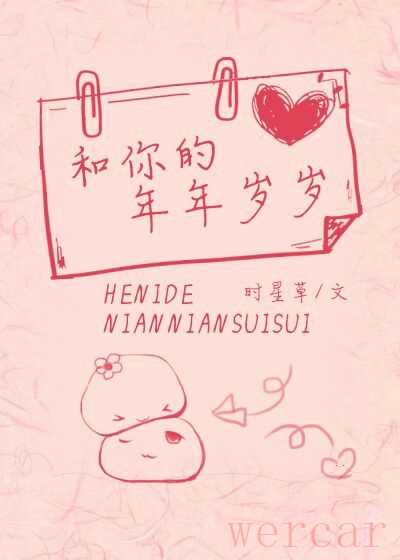 和你的
年年岁岁
HENIDE
时星草/文
NIANNIANSUISUI
wercar